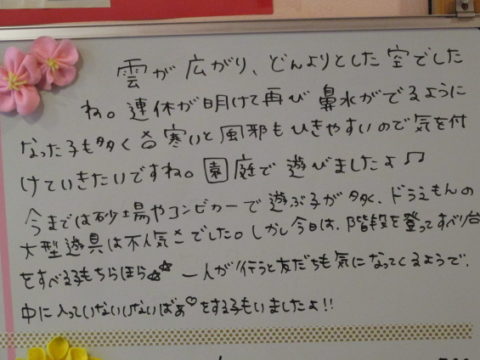 雲が広がり、どんよりとした空でした
ね。連休が明けて再び鼻水がでるように
なった子も多く 寒いと風邪もひきやすいので気を付
けていきたいですね。園庭で遊びましたよ♫
今までは砂場やコンビカーで遊ぶ子が多く、ドラえもんの
大型遊具は不人気でした。しかし今日は、階段を登ってすべり台
をすべる子もちらほら☆☆ 一人が行うと友だちも気になってくるようで、
中に入っていないいないばぁ♡をする子もいましたよ!!